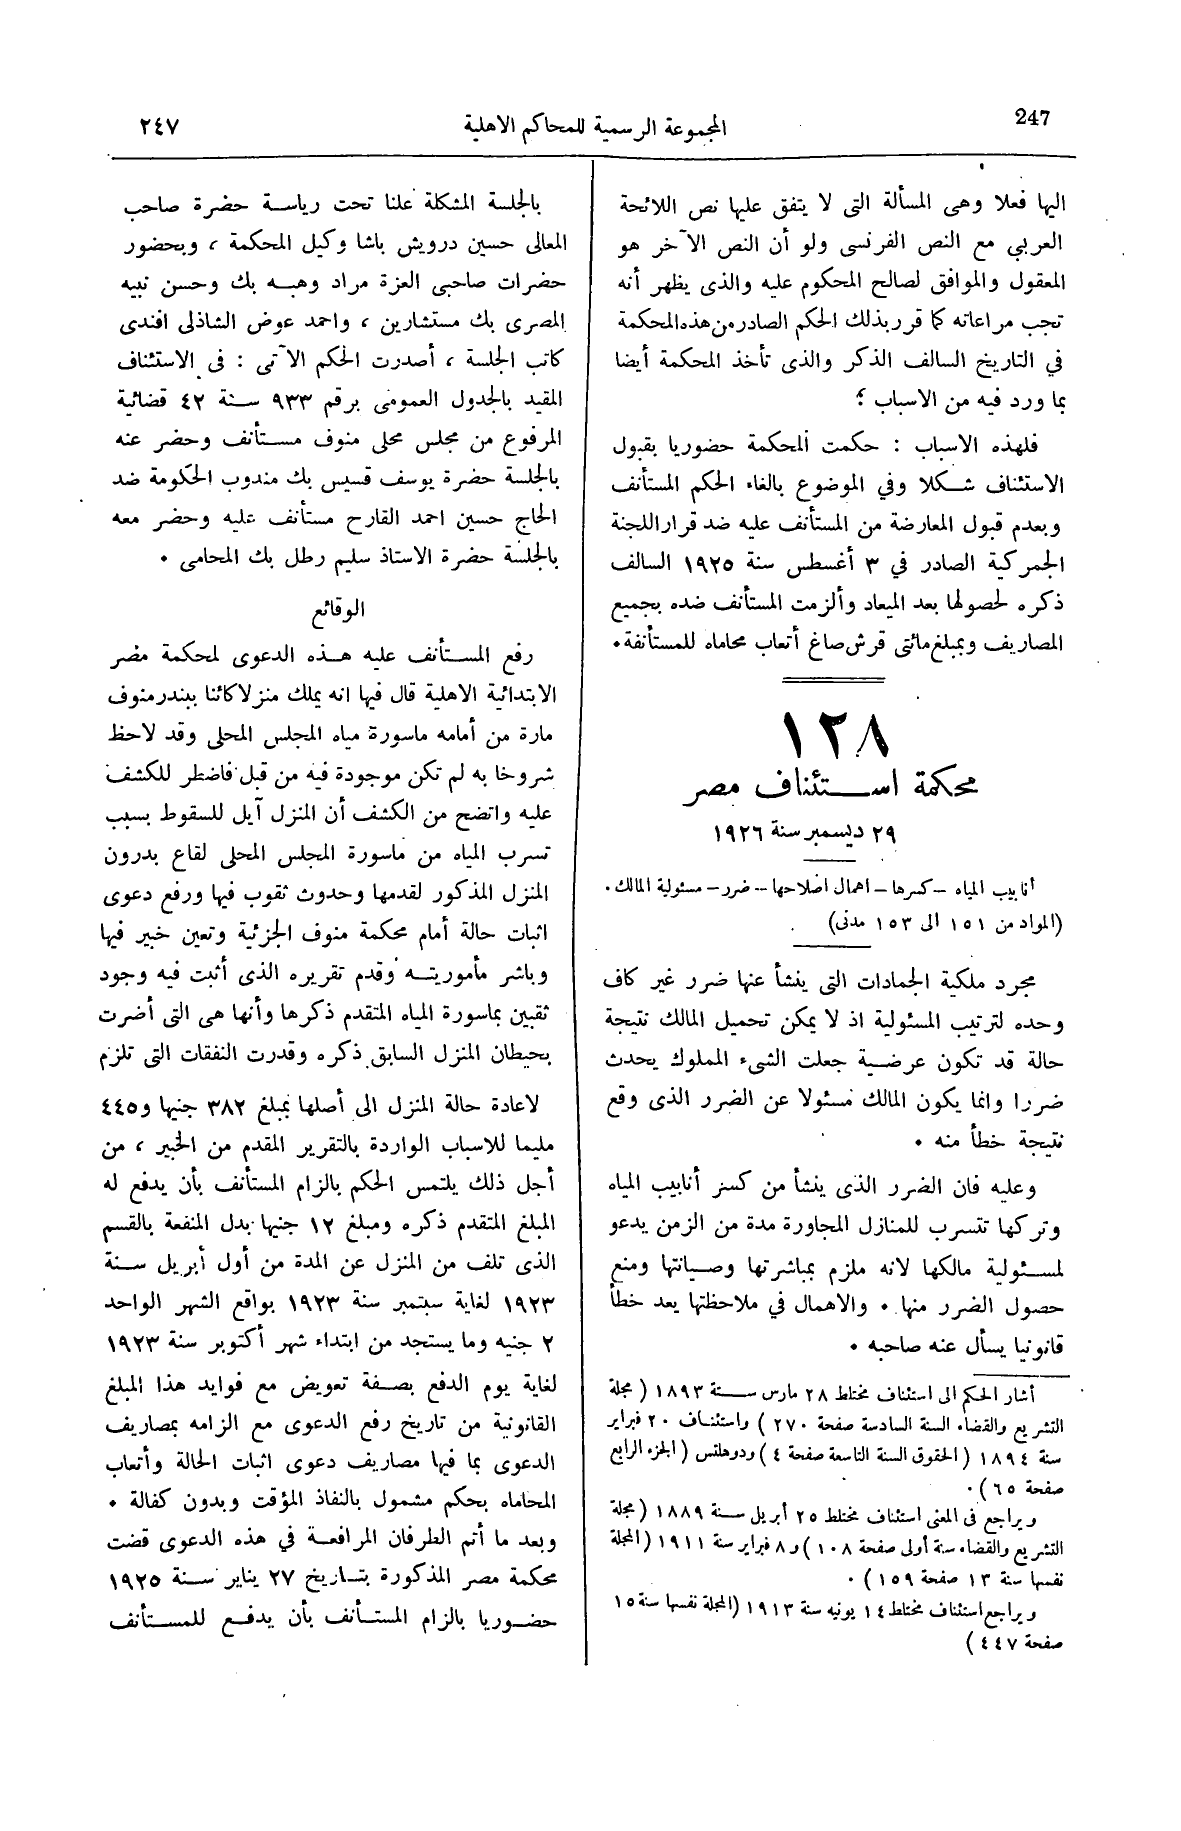 247
المجموعة الرسمية للمحاكم الاهلية
٢٤٧
اليها فعلا وهى المسألة التى لا يتفق عليها نص اللائحة
العربي مع النص الفرنسى ولو أن النص الآخر هو
المعقول والموافق لصالح المحكوم عليه والذى يظهر أنه
تجب مراعاته كما قرر بذلك الحكم الصادر من هذه المحكمة
في التاريخ السالف الذكر والذى تأخذ المحكمة أيضا
بما ورد فيه من الاسباب ؟
فلهذه الاسباب : حكمت المحكمة حضوريا بقبول
الاستئناف شكلا وفي الموضوع بالغاء الحكم المستأنف
وبعدم قبول المعارضة من المستأنف عليه ضد قرار اللجنة
الجمركية الصادر في ٣ أغسطس سنة ١٩٢٥ السالف
ذكره لحصولها بعد الميعاد وألزمت المستأنف ضده بجميع
المصاريف وبمبلغ مائتى قرش صاغ أتعاب محاماه للمستأنفة .
١٢٨
محكمة استئناف مصر
٢٩ ديسمبر سنة ١٩٢٦
أنابيب المياه – كسرها – اهمال اصلاحها – ضرر – مسئولية المالك .
(المواد من ١٥١ الى ١٥٣ مدنى)
مجرد ملكية الجمادات التى ينشأ عنها ضرر غير كاف
وحده لترتيب المسئولية اذ لا يمكن تحميل المالك نتيجة
حالة قد تكون عرضية جعلت الشىء المملوك يحدث
ضررا وانما يكون المالك مسئولا عن الضرر الذى وقع
نتيجة خطأ منه .
وعليه فان الضرر الذى ينشأ من كسر أنابيب المياه
وتركها تتسرب للمنازل المجاورة مدة من الزمن يدعو
لمسئولية مالكها لانه ملزم بمباشرتها وصيانتها ومنع
حصول الضرر منها . والاهمال في ملاحظتها يعد خطأ
قانونيا يسأل عنه صاحبه .
أشار الحكم الى استئناف مختلط ٢٨ مارس سنة ١٨٩٣ ( مجلة
التشريع والقضاء السنة السادسة صفحة ٢٧٠ ) واستئناف ٢٠ فبراير
سنة ١٨٩٤ ( الحقوق السنة التاسعة صفحة ٤ ) ودوهلتس ( الجزء الرابع
صفحة ٦٥ ) .
ويراجع فى المعنى استئناف مختلط ٢٥ أبريل سنة ١٨٨٩ ( مجلة
التشريع والقضاء سنة أولى صفحة ١٠٨ ) و ٨ فبراير سنة ١٩١١ (المجلة
نفسها سنة ١٣ صفحة ١٥٩ ) .
ويراجع استئناف مختلط ١٤ يونيه سنة ١٩١٣ (المجلة نفسها سنة ١٥
صفحة ٤٤٧ )
بالجلسة المشكلة علنا تحت رياسة حضرة صاحب
المعالى حسين درويش باشا وكيل المحكمة ، وبحضور
حضرات صاحبى العزة مراد وهبه بك وحسن نبيه
المصرى بك مستشارين ، واحمد عوض الشاذلى افندى
كاتب الجلسة ، أصدرت الحكم الآتى : فى الاستئناف
المقيد بالجدول العمومى برقم ٩٣٣ سنة ٤٢ قضائية
المرفوع من مجلس محلى منوف مستأنف وحضر عنه
بالجلسة حضرة يوسف قسيس بك مندوب الحكومة ضد
الحاج حسين احمد القارح مستأنف عليه وحضر معه
بالجلسة حضرة الاستاذ سليم رطل بك المحامى .
الوقائع
رفع المستأنف عليه هذه الدعوى لمحكمة مصر
الابتدائية الاهلية قال فيها انه يملك منزلا كائنا ببندر منوف
مارة من أمامه ماسورة مياه المجلس المحلى وقد لاحظ
شروخا به لم تكن موجودة فيه من قبل فاضطر للكشف
عليه واتضح من الكشف أن المنزل آيل للسقوط بسبب
تسرب المياه من ماسورة المجلس المحلى لقاع بدرون
المنزل المذكور لقدمها وحدوث ثقوب فيها ورفع دعوى
اثبات حالة أمام محكمة منوف الجزئية وتعين خبير فيها
وباشر مأموريته وقدم تقريره الذى أثبت فيه وجود
ثقبين بماسورة المياه المتقدم ذكرها وأنها هى التى أضرت
بحيطان المنزل السابق ذكره وقدرت النفقات التى تلزم
لاعادة حالة المنزل الى أصلها بمبلغ ٣٨٢ جنيها و٤٤٥
مليما للاسباب الواردة بالتقرير المقدم من الخبير ، من
أجل ذلك يلتمس الحكم بالزام المستأنف بأن يدفع له
المبلغ المتقدم ذكره ومبلغ ١٢ جنيها بدل المنفعة بالقسم
الذى تلف من المنزل عن المدة من أول أبريل سنة
١٩٢٣ لغاية سبتمبر سنة ١٩٢٣ بواقع الشهر الواحد
٢ جنيه وما يستجد من ابتداء شهر أكتوبر سنة ١٩٢٣
لغاية يوم الدفع بصفة تعويض مع فوايد هذا المبلغ
القانونية من تاريخ رفع الدعوى مع الزامه بمصاريف
الدعوى بما فيها مصاريف دعوى اثبات الحالة وأتعاب
المحاماه بحكم مشمول بالنفاذ المؤقت وبدون كفالة .
وبعد ما أتم الطرفان المرافعة في هذه الدعوى قضت
محكمة مصر المذكورة بتاريخ ٢٧ يناير سنة ١٩٢٥
حضوريا بالزام المستأنف بأن يدفع للمستأنف